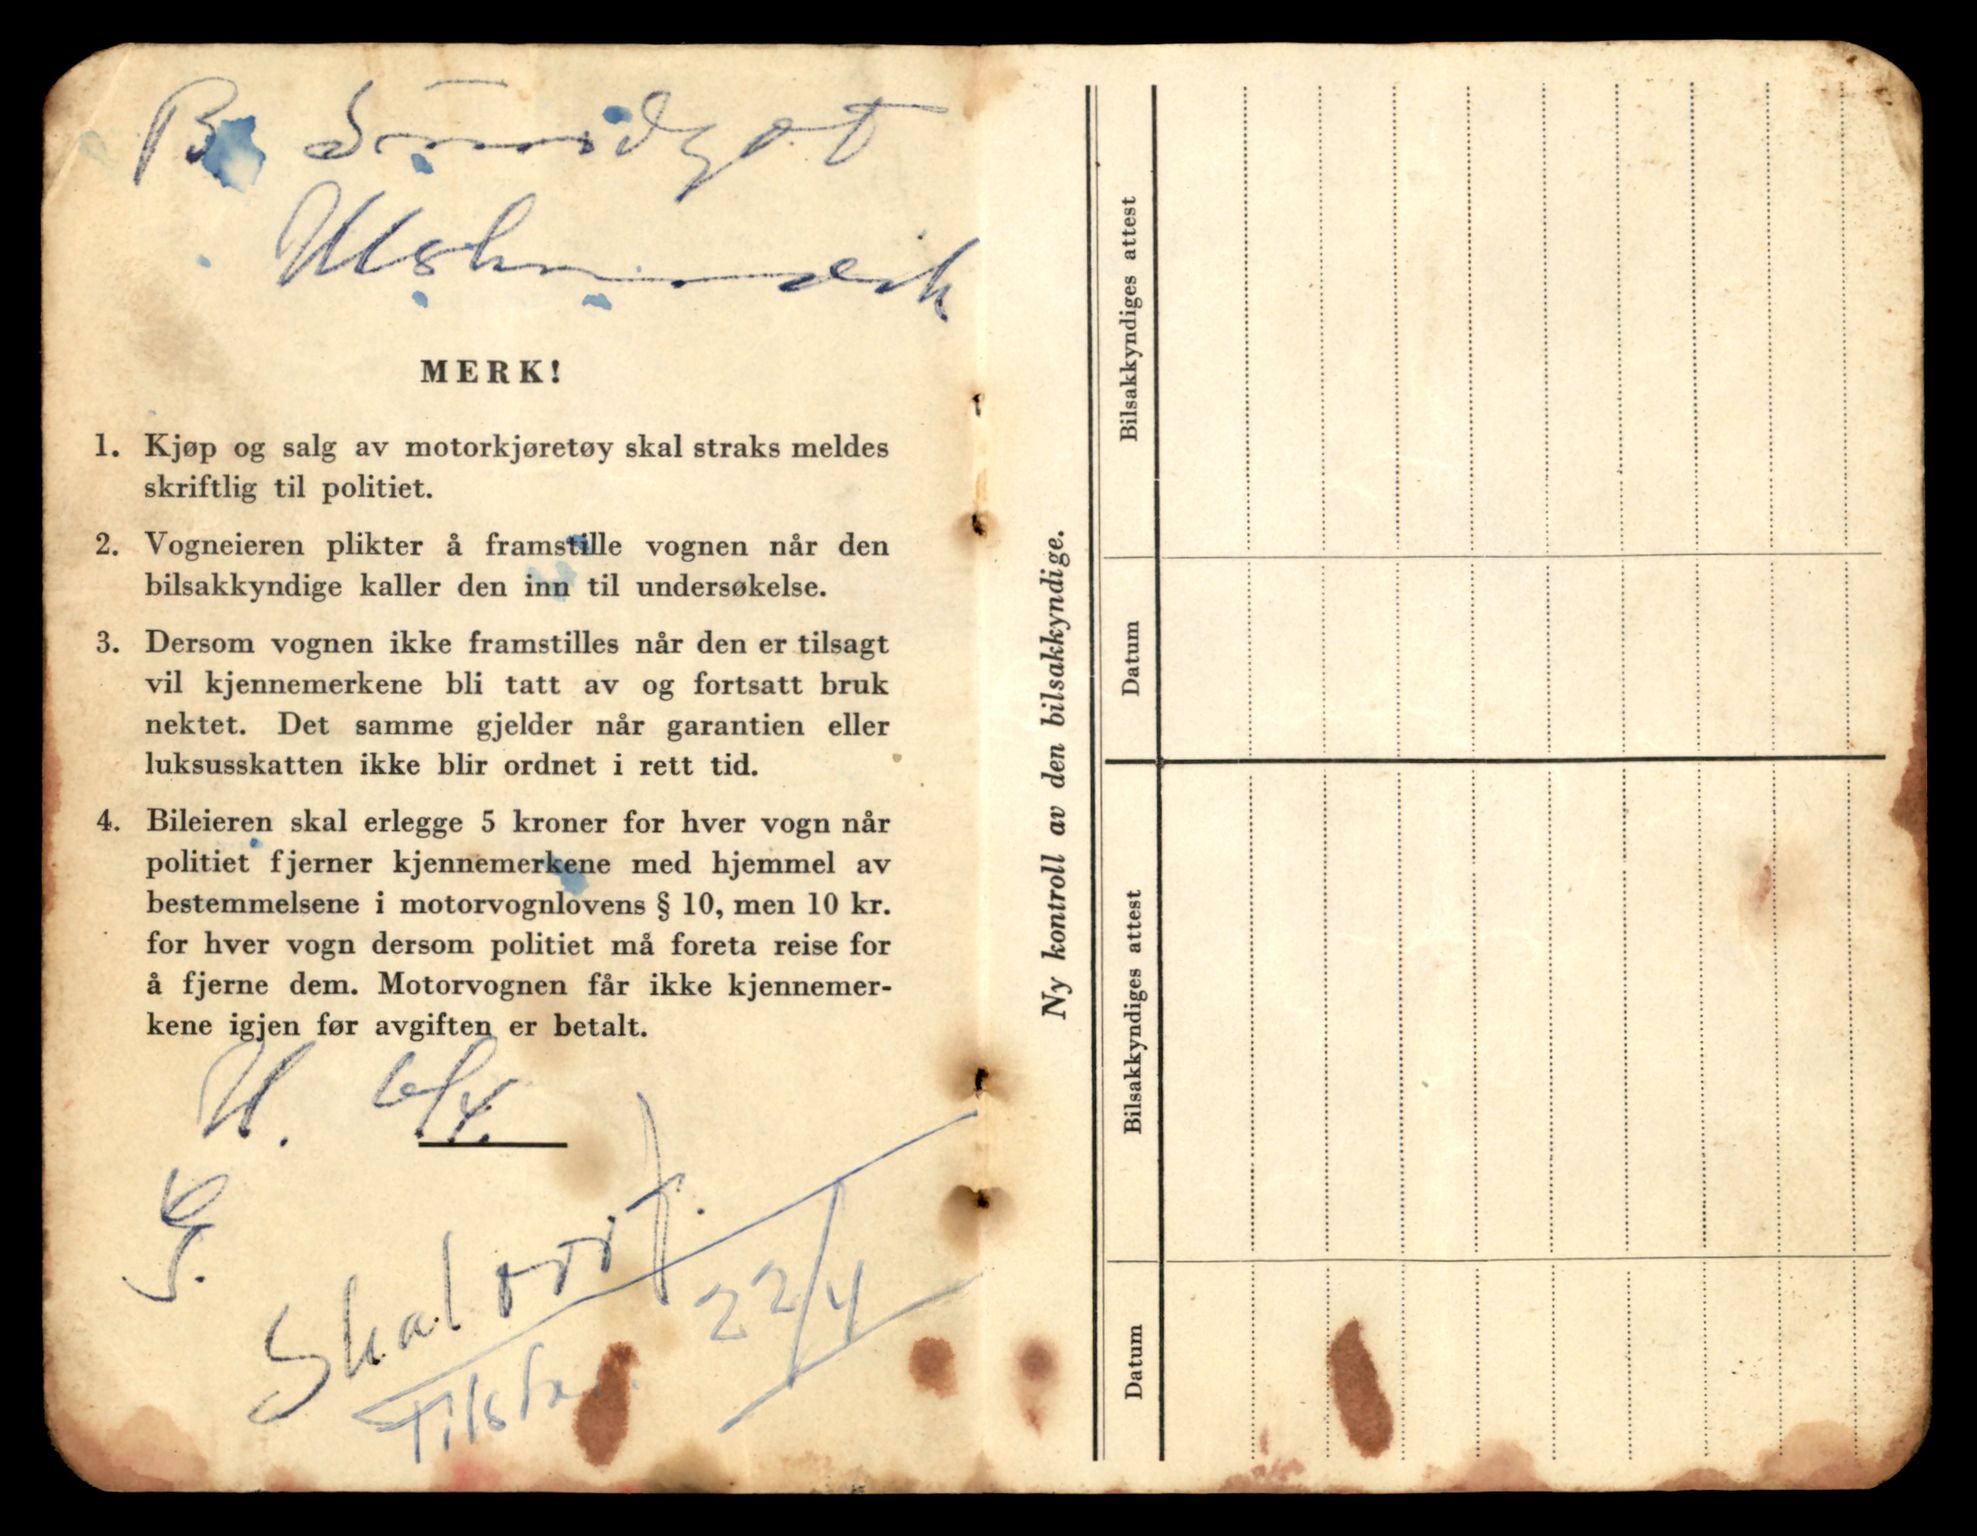 MERK!
1. Kjøp og salg av motorkjøretøy skal straks meldes
skriftlig til politiet.
2. Vogneieren plikter å framstille vognen når den
bilsakkyndige kaller den inn til undersøkelse.
3. Dersom vognen ikke framstilles når den er tilsagt
vil kjennemerkene bli tatt av og fortsatt bruk
nektet. Det samme gjelder når garantien eller
luksusskatten ikke blir ordnet i rett tid.
4. Bileieren skal erlegge 5 kroner for hver vogn når
politiet fjerner kjennemerkene med hjemmel av
bestemmelsene i motorvognlovens § 10, men 10 kr.
for hver vogn dersom politiet må foreta reise for
å fjerne dem. Motorvognen får ikke kjennemer-
kene igjen før avgiften er betalt.
22/4
Ny kontroll av den bilsakkyndige.
Datum
Bilsakkyndiges attest
Datum
Bilsakkyndiges attest